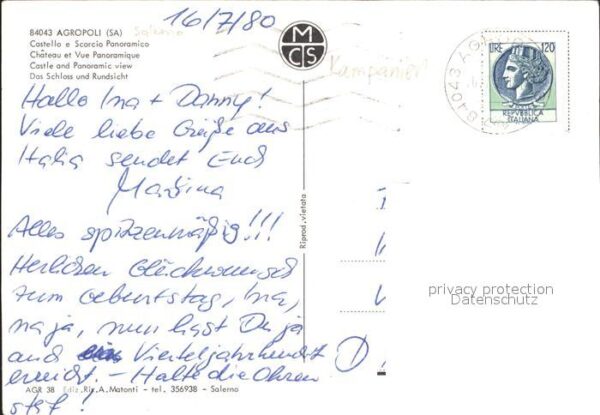 16/7/80
84043 AGROPOLI (SA) Salerno
Castello e Scorcio Panoramico
Château et Vue Panoramique
Castle and Panoramic view
Das Schloss und Rundsicht
MCS
Kampanien
84043 AGROPOLI
LIRE 120
REPVBBLICA
ITALIANA
Hallo Ina + Danny!
Viele liebe Grüße aus
Italia sendet Euch
Martina
Alles spitzenmäßig!!!
Herlichen Glückwunsch
zum Geburtstag, Ina,
na ja, nun hast Du ja
auch ein Vierteljahrhundert
erreicht. – Halte die Ohren
steif!
Riprod. vietata
privacy protection
Datenschutz
AGR 38 Ediz. Ris. A. Matonti - tel. 356938 - Salerno